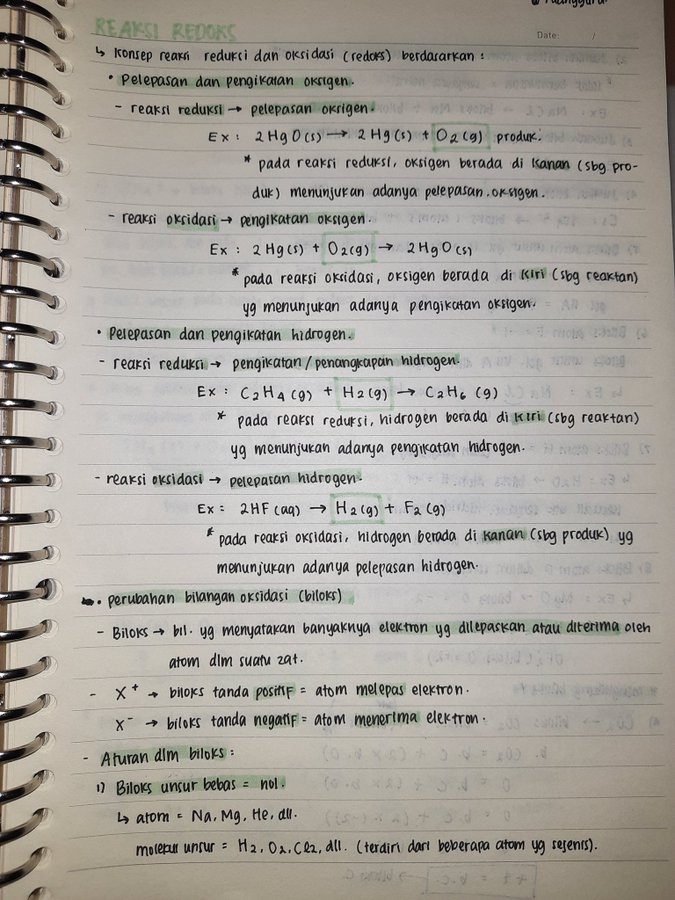 REAKSI REDOKS
Date: /
↳ Konsep reaksi reduksi dan oksidasi (redoks) berdasarkan :
• Pelepasan dan pengikatan oksigen.
- reaksi reduksi → pelepasan oksigen.
Ex : 2HgO(s) → 2Hg(s) + O2(g) produk.
* pada reaksi reduksi, oksigen berada di kanan (sbg pro-
duk) menunjukan adanya pelepasan oksigen.
- reaksi oksidasi → pengikatan oksigen.
Ex : 2Hg(s) + O2(g) → 2HgO(s)
* pada reaksi oksidasi, oksigen berada di kiri (sbg reaktan)
yg menunjukan adanya pengikatan oksigen.
• Pelepasan dan pengikatan hidrogen.
- reaksi reduksi → pengikatan/penangkapan hidrogen.
Ex : C2H4(g) + H2(g) → C2H6(g)
* pada reaksi reduksi, hidrogen berada di kiri (sbg reaktan)
yg menunjukan adanya pengikatan hidrogen.
- reaksi oksidasi → pelepasan hidrogen.
Ex : 2HF(aq) → H2(g) + F2(g)
* pada reaksi oksidasi, hidrogen berada di kanan (sbg produk) yg
menunjukan adanya pelepasan hidrogen.
• perubahan bilangan oksidasi (biloks)
- Biloks → bil. yg menyatakan banyaknya elektron yg dilepaskan atau diterima oleh
atom dlm suatu zat.
- X+ → biloks tanda positif = atom melepas elektron.
X- → biloks tanda negatif = atom menerima elektron.
- Aturan dlm biloks :
1) Biloks unsur bebas = nol.
↳ atom = Na, Mg, He, dll.
molekul unsur = H2, O2, Cl2, dll. (terdiri dari beberapa atom yg sejenis).